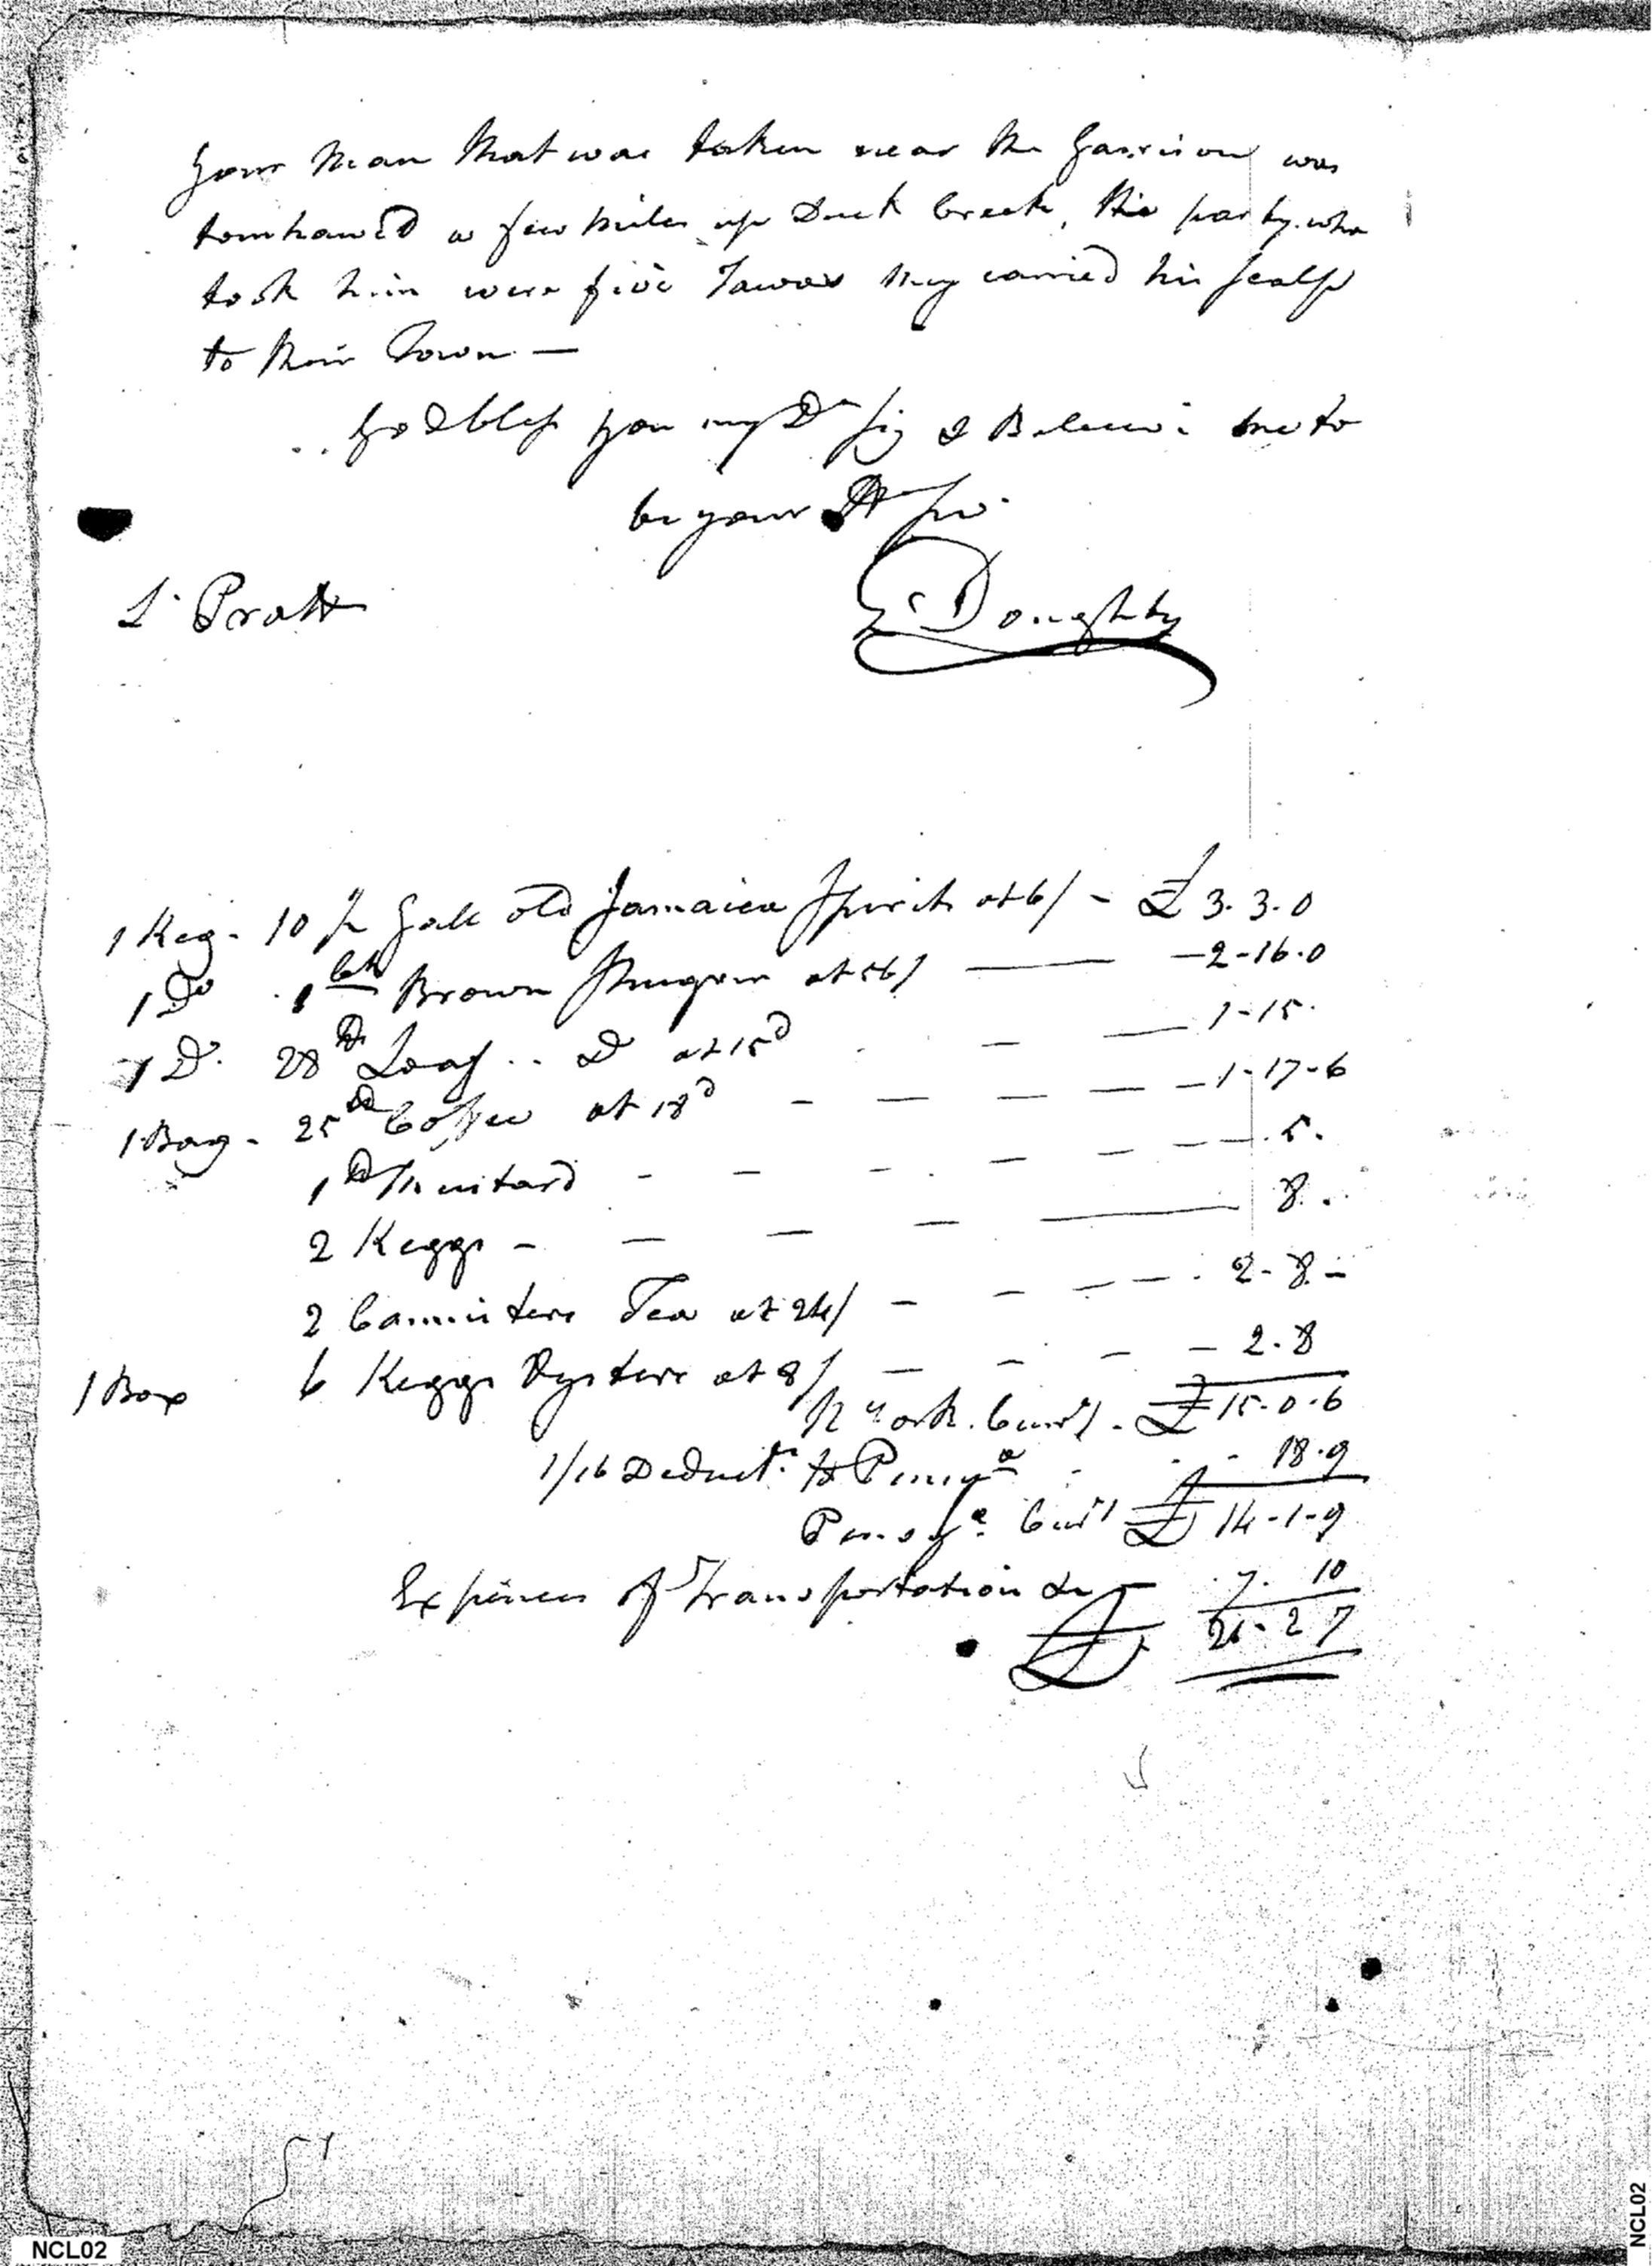 your Man that was taken near the Garrison was
tomhawk'd a few miles up Duck Creek, the party who
took him were five Tawas they carried his scalp
to their Town —
God bless you my Dr Sir & Believe me to
be your Hl Ser
Doughty
Lt Pratt
1 Keg - 10 ½ Gall old Jamaica Spirits at 6/ - £ 3. 3. 0
1 Do . 1 Cwt Brown Shugar at 56/ — -2-16.0
1 Do. 28 lb Loaf .. Do at 15d — 1-15.
1 Bag - 25 lb Coffee at 18d - - - - 1-17-6
1 lb Mustard - - - - - - .5.
2 Keggs - - - - - 8..
2 Cannisters Tea at 24/ - - - - . 2-8-
1 Box 6 Keggs Oysters at 8/ - - - - 2.8
N York. Curry. £15-0-6
1/16 Deduct. to Pennya - - 18.9
Pensya. Curry £14-1-9
Expences of Transportation &c - .7. 10
£ 21-2 7
NCL02
NCL02